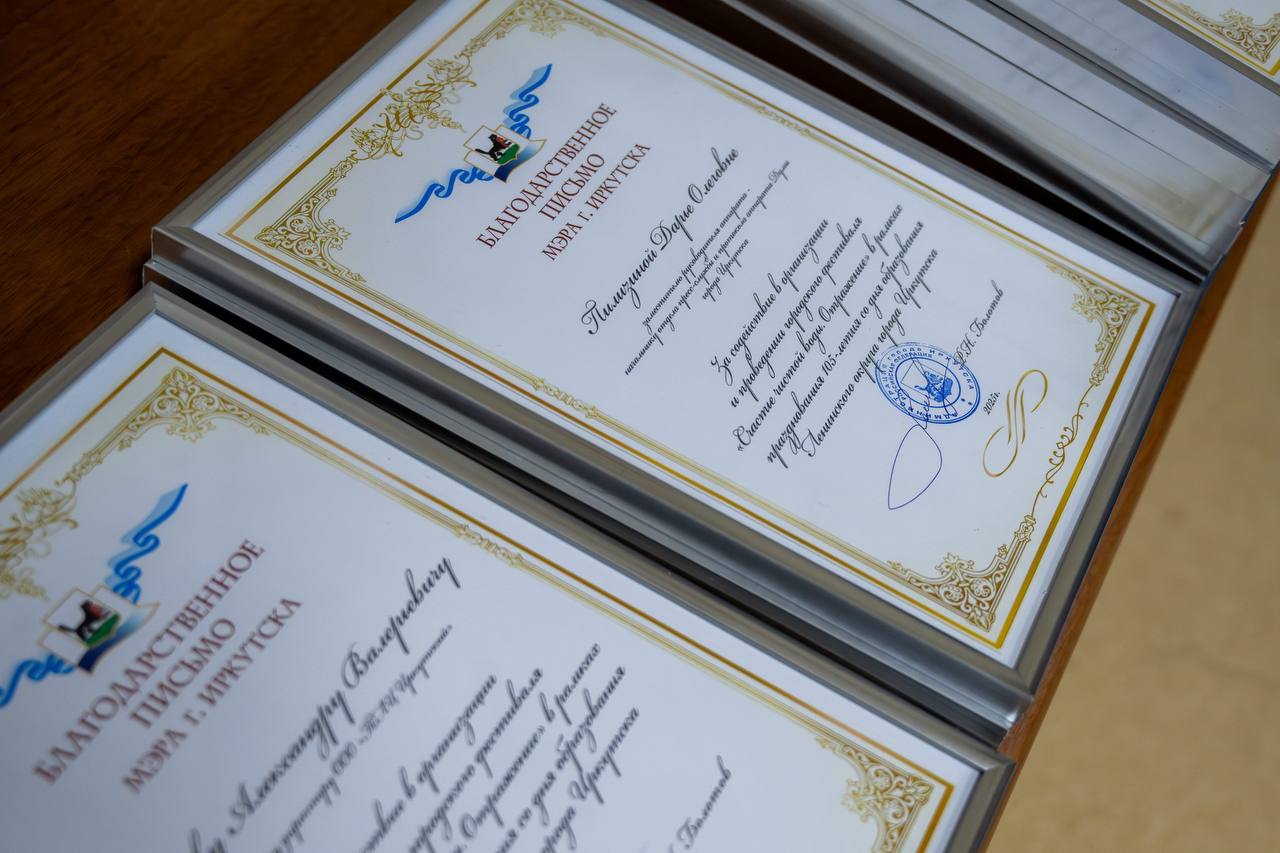 БЛАГОДАРСТВЕННОЕ
ПИСЬМО
МЭРА Г. ИРКУТСКА
Пимичиной Дарье Олеговне
заместителю руководителя аппарата -
начальнику отдела пресс-службы и протокола аппарата Думы
города Иркутска
За содействие в организации
и проведении городского фестиваля
«Счастье чистой воды. Отражение» в рамках
празднования 105-летия со дня образования
Ленинского округа города Иркутска
Р.Н. Болотов
2025г.
БЛАГОДАРСТВЕННОЕ
ПИСЬМО
МЭРА Г. ИРКУТСКА
Александру Валериевичу
ООО
в организации
городского фестиваля
Отражение» в рамках
со дня образования
города Иркутска
Болотов